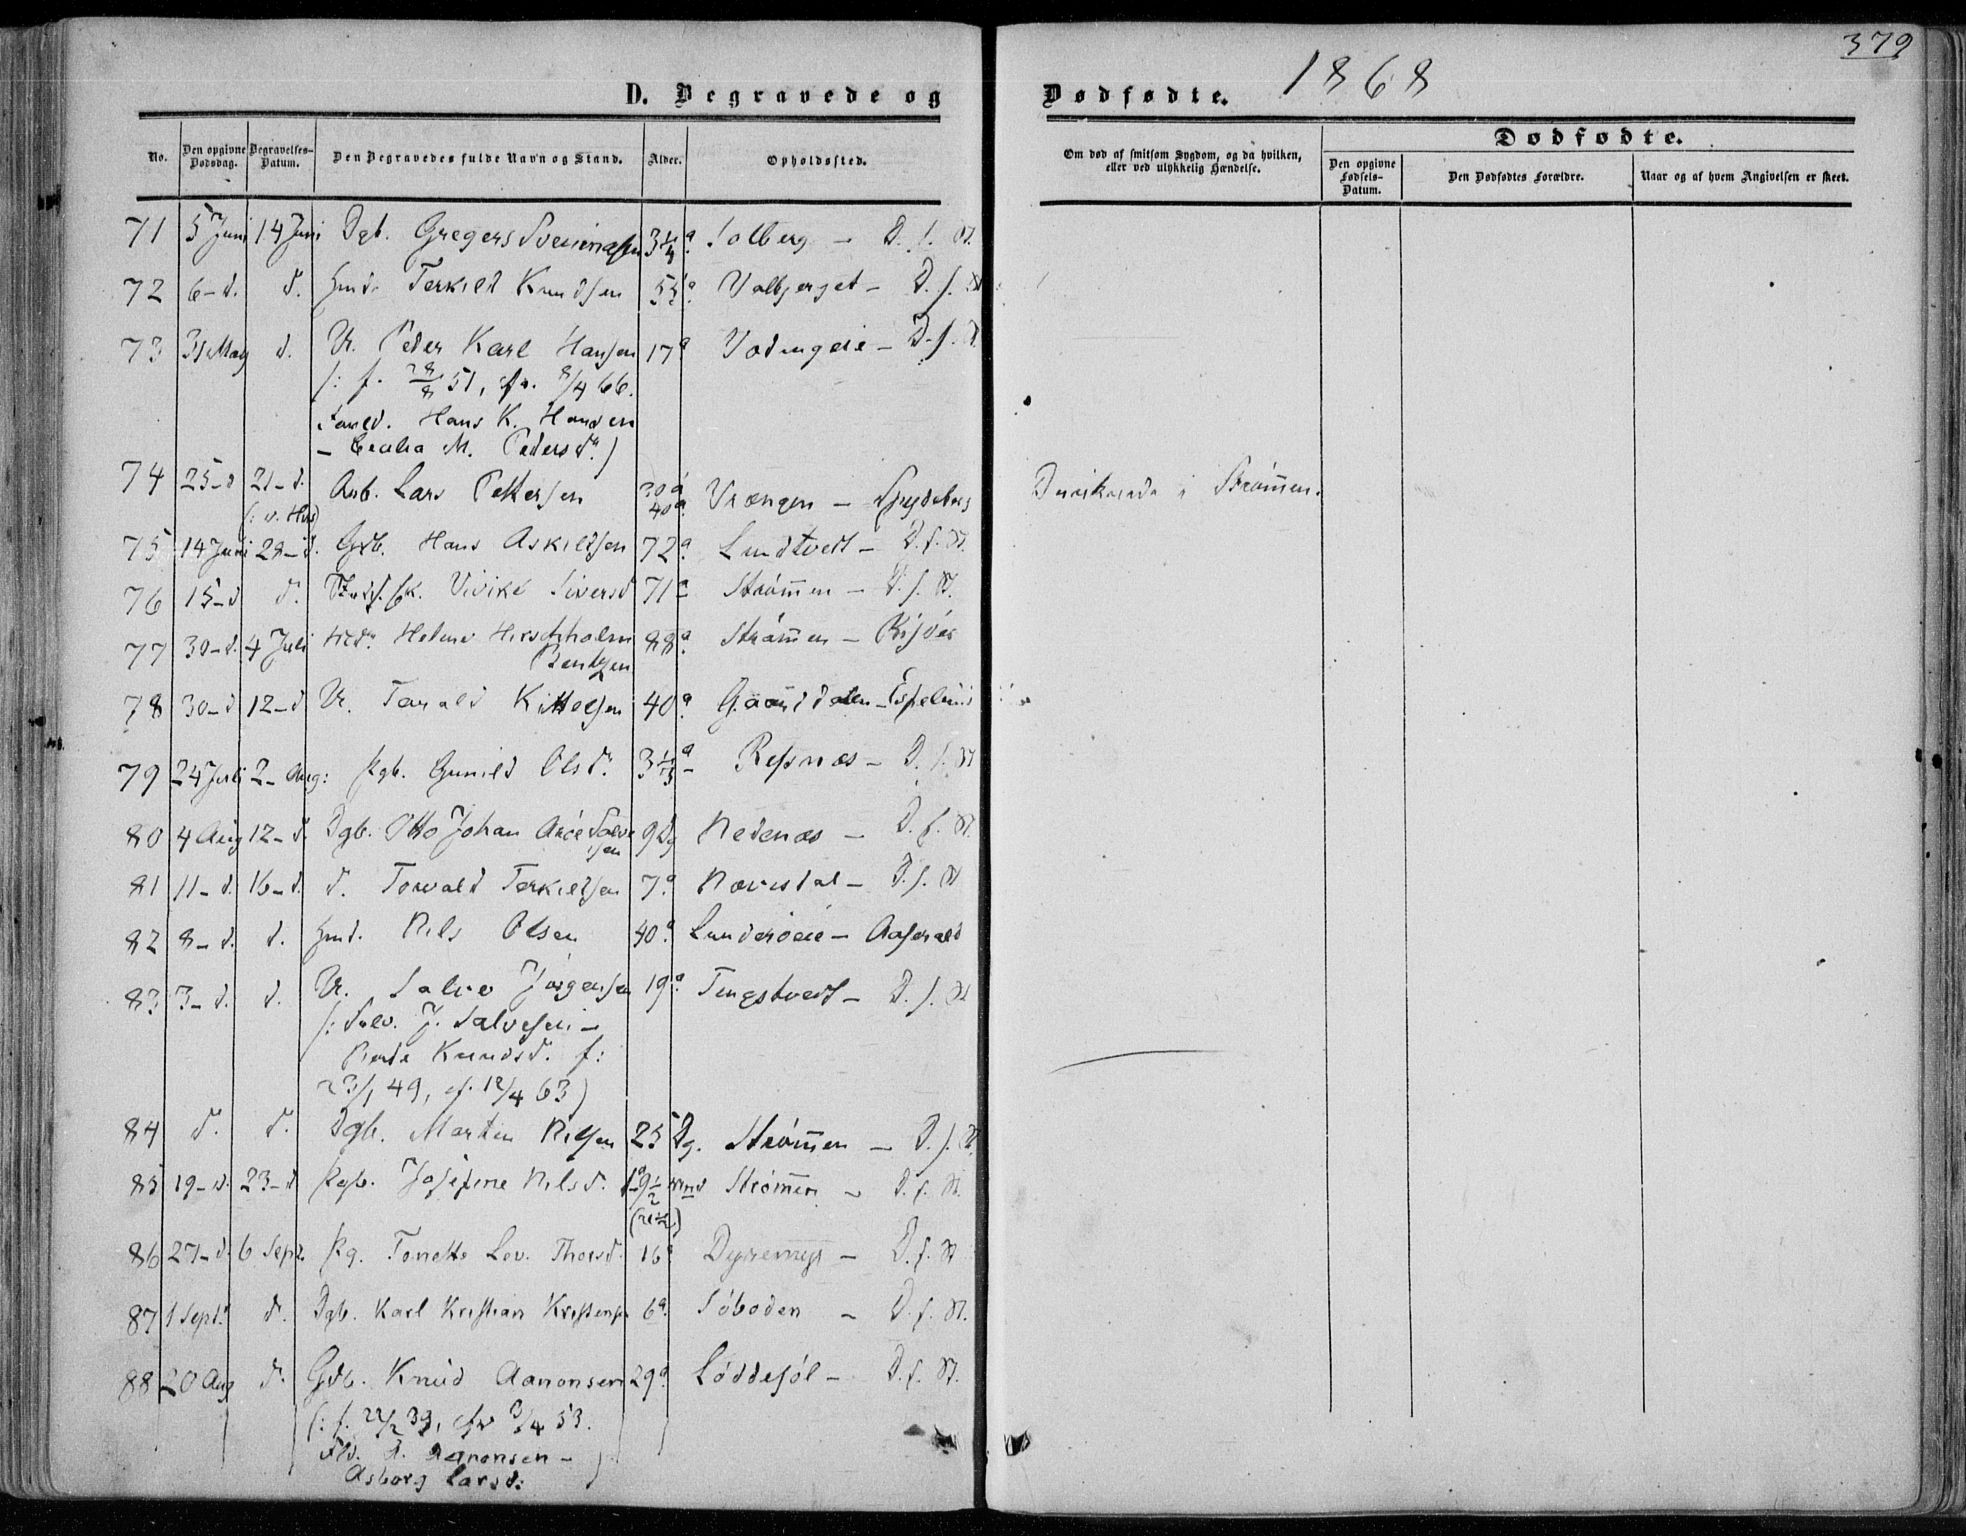 379
1868
D. Begravede og
Dødfødte.
Dødfødte.
No.
Den opgivne Dødsdag.
Begravelses-Datum.
Den Begravedes fulde Navn og Stand.
Alder.
Opholdssted.
Om død af smitsom Sygdom, og da hvilken, eller ved ulykkelig Hændelse.
Den opgivne Fødsels-Datum.
Den Dødfødtes Forældre.
Naar og af hvem Angivelsen er skeet.
71 5 Juni 14 Juni Dgb. Gregers 3 1/4 a Solberg - D. f. St.
72 6-d. d. Hmd. Terkild Knudsen 55 a. Valbjerget - D. f. St.
73 31 May d. U. Peder Karl Hansen 17 a Vodengeie - D. f. St.
(: f. 28/8 51, cfr. 8/4 66.
Foreld. Hans K. Hansen
- Cecilia M. Pedersd.)
74 25-d 21-d. Arb. Lars Pettersen 30 a 40 a. Vrængen - Spydeberg Druknede i Strømmen.
75 14 Juni 28-d. Gdb. Hans Askildsen 72 a. Lundtvedt - D. f. St.
76 15-d d. Vivike Siversd 71 a Strømmen - D. f. St.
77 30-d. 4 Juli Md. Helene Hirschholm 88 a. Strømmen - Risøer
Bentzen
78 30-d 12-d U. Tarald Kittelsen 40 a. - Espeland
79 24 Juli 2-Aug: Pgb. Gunild Olsd. 3 1/3 a Refsnæs - D. f. St
80 4 Aug 12-d. Dgb. Otto Johan Salve 9 Dg Nedenæs - D. f. St.
sen
81 11-d. 16-d. d. Torvald Terkildsen 7 a Nævisdal - D. f. St
82 8-d. d. Hmd. Nils Olsen 40 a. Lunderøeie - Aaserald
83 3-d. d. U. Salve Jørgensen 19 a Tingstvedt - D. f. St
(: Salv. J. Salvesen -
Knudsd. f:
23/1 49, cf. 12/4 63)
84 d. d. Dgb. Martin Nilsen 25 Dg. Strømmen - D. f. St.
85 19-d. 23-d Pgb. Josefine Nilsd. 1 a 9 1/2 Mnd Strømmen - D. f. St.
(21 1/2)
86 27-d. 6 Sept. Pg. Tonette Lov. Thorsd. 16 a Dyremyr - D. f. St
87 1 Sept. d. Dgb. Karl Kristian Kristensen 6 a. Søboden - D. f. St.
88 20 Aug d. Gdb. Knud Aanonsen 29 a. Løddesøl - D. f. St.
(: f. 22/2 39, cfr 3/4 53.
Fld. Aanonsen -
Asborg Larsd:)